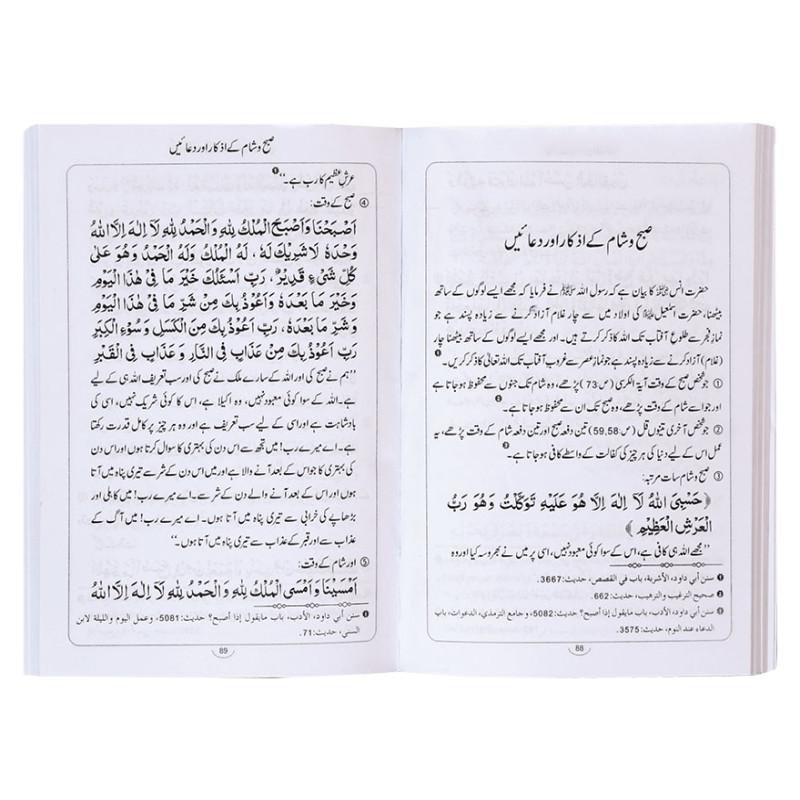 صبح و شام کے اذکار اور دعائیں
حضرت انس رضی اللہ عنہ کا بیان ہے کہ رسول اللہ ﷺ نے فرمایا کہ مجھے ایسے لوگوں کے ساتھ
بیٹھنا، حضرت اسمٰعیل علیہ السلام کی اولاد میں سے چار غلام آزاد کرنے سے زیادہ پسند ہے جو
نماز فجر سے طلوع آفتاب تک اللہ کا ذکر کرتے ہیں۔ اور مجھے ایسے لوگوں کے ساتھ بیٹھنا چار
(غلام) آزاد کرنے سے زیادہ پسند ہے جو نماز عصر سے غروب آفتاب تک اللہ تعالیٰ کا ذکر کریں۔ ❶
① جو شخص صبح کے وقت آیۃ الکرسی (ص 73) پڑھے، وہ شام تک جنوں سے محفوظ ہو جاتا ہے
اور جو اسے شام کے وقت پڑھے، وہ صبح تک ان سے محفوظ ہو جاتا ہے۔ ❷
② جو شخص آخری تینوں قل (ص: 59,58) تین دفعہ صبح اور تین دفعہ شام کے وقت پڑھے، یہ
عمل اس کے لیے دنیا کی ہر چیز کی کفالت کے واسطے کافی ہو جاتا ہے۔ ❸
③ صبح و شام سات مرتبہ:
﴿حَسْبِيَ اللّٰهُ لَآ اِلٰهَ اِلَّا هُوَ عَلَيْهِ تَوَكَّلْتُ وَهُوَ رَبُّ
الْعَرْشِ الْعَظِيْمِ﴾
’’مجھے اللہ ہی کافی ہے، اس کے سوا کوئی معبود نہیں، اسی پر میں نے بھروسہ کیا اور وہ
❶ سنن أبي داود، الأشربة، باب في القصص، حديث: 3667.
❷ صحيح الترغيب والترهيب، حديث: 662.
❸ سنن أبي داود، الأدب، باب مايقول إذا أصبح؟ حديث: 5082، و جامع الترمذي، الدعوات، باب
الدعاء عند النوم، حديث: 3575.
88
صبح و شام کے اذکار اور دعائیں
عرش عظیم کا رب ہے۔‘‘ ❶
④ صبح کے وقت:
اَصْبَحْنَا وَاَصْبَحَ الْمُلْكُ لِلّٰهِ وَالْحَمْدُ لِلّٰهِ لَآ اِلٰهَ اِلَّا اللّٰهُ
وَحْدَهٗ لَا شَرِيْكَ لَهٗ، لَهُ الْمُلْكُ وَلَهُ الْحَمْدُ وَهُوَ عَلٰى
كُلِّ شَيْءٍ قَدِيْرٌ، رَبِّ اَسْئَلُكَ خَيْرَ مَا فِيْ هٰذَا الْيَوْمِ
وَخَيْرَ مَا بَعْدَهٗ وَاَعُوْذُ بِكَ مِنْ شَرِّ مَا فِيْ هٰذَا الْيَوْمِ
وَشَرِّ مَا بَعْدَهٗ، رَبِّ اَعُوْذُ بِكَ مِنَ الْكَسَلِ وَسُوْءِ الْكِبَرِ
رَبِّ اَعُوْذُ بِكَ مِنْ عَذَابٍ فِي النَّارِ وَ عَذَابٍ فِي الْقَبْرِ
’’ہم نے صبح کی اور اللہ کے سارے ملک نے صبح کی اور سب تعریف اللہ ہی کے لیے
ہے۔ اللہ کے سوا کوئی معبود نہیں، وہ اکیلا ہے، اس کا کوئی شریک نہیں، اسی کی
بادشاہت ہے اور اسی کے لیے سب تعریف ہے اور وہ ہر چیز پر کامل قدرت رکھتا
ہے۔ اے میرے رب! میں تجھ سے اس دن کی بہتری کا سوال کرتا ہوں اور اس دن کی
بہتری کا جو اس کے بعد آنے والا ہے اور میں اس دن کے شر سے تیری پناہ میں آتا
ہوں اور اس کے بعد آنے والے دن کے شر سے۔ اے میرے رب! میں کاہلی اور
بڑھاپے کی خرابی سے تیری پناہ میں آتا ہوں۔ اے میرے رب! میں آگ کے
عذاب سے اور قبر کے عذاب سے تیری پناہ میں آتا ہوں۔‘‘
⑤ اور شام کے وقت:
اَمْسَيْنَا وَ اَمْسَى الْمُلْكُ لِلّٰهِ وَ الْحَمْدُ لِلّٰهِ لَآ اِلٰهَ اِلَّا اللّٰهُ
❶ سنن أبي داود، الأدب، باب مايقول إذا أصبح؟ حديث: 5081، و عمل اليوم والليلة لابن
السني، حديث: 71.
89